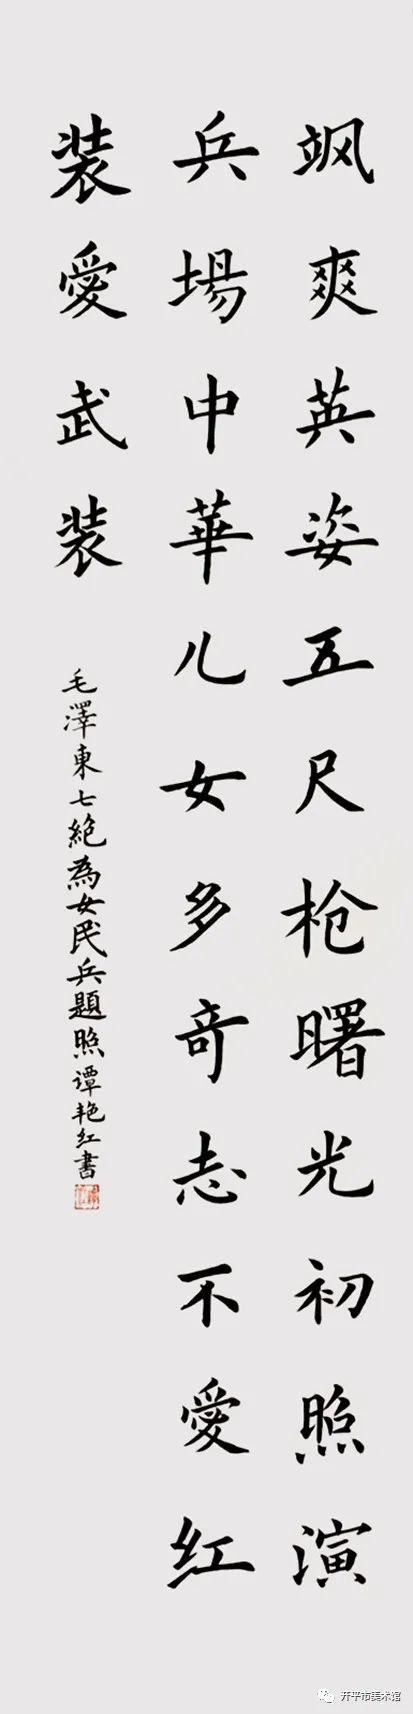 飒爽英姿五尺枪曙光初照演
兵場中華儿女多奇志不愛红
装愛武装
毛澤東七絶為女民兵題照谭艳红書
开平市美术馆